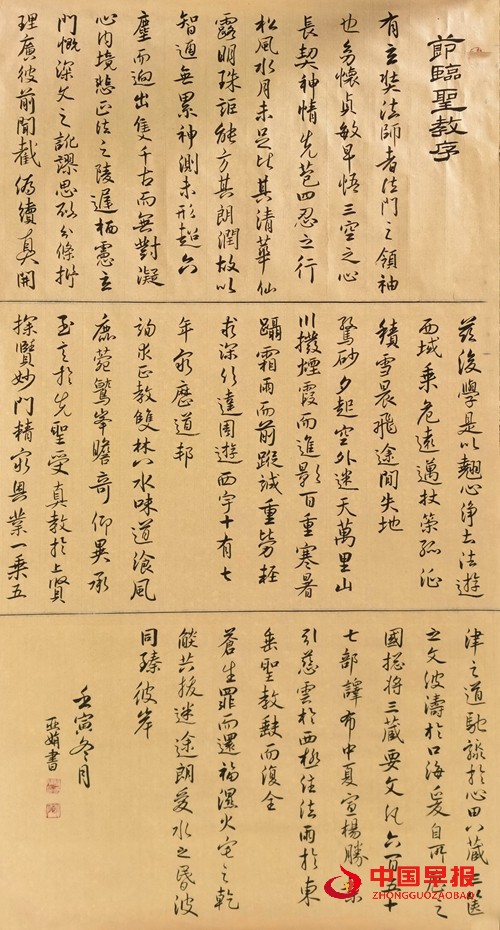 節臨聖教序
有玄奘法師者法門之領袖
也幼懷貞敏早悟三空之心
長契神情先苞四忍之行
松風水月未足比其清華仙
露明珠詎能方其朗潤故以
智通無累神測未形超六
塵而迥出隻千古而無對凝
心內境悲正法之陵遲栖慮玄
門慨深文之訛謬思欲分條析
理廣彼前聞截偽續真開
茲後學是以翹心淨土法遊
西域乘危遠邁杖策孤征
積雪晨飛途閒失地
驚砂夕起空外迷天萬里山
川撥煙霞而進影百重寒暑
躡霜雨而前蹤誠重勞輕
求深訪達周遊西宇十有七
年窮歷道邦
詢求正教雙林八水味道湌風
鹿菀鷲峯瞻奇仰異承
至言於先聖受真教於上賢
探賾妙門精窮奧業一乘五
津之道馳驟於心田八藏三篋
之文波濤於口海爰自所歷之
國揔將三藏要文凡六百五十
七部譯布中夏宣揚勝業
引慈雲於西極注法雨於東
垂聖教缺而復全
蒼生罪而還福濕火宅之乾
燄共拔迷途朗愛水之昏波
同臻彼岸
壬寅冬月
亞娟書
中国早报
ZHONGGUOZAOBAO